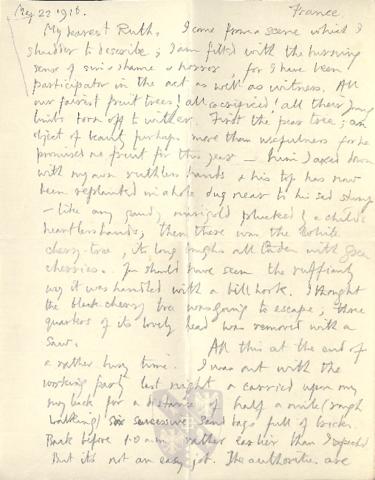 May 22 1916. France
My dearest Ruth, I come from a scene which I
shudder to describe; I am filled with the burning
sense of shame & horror, for I have been
participator in the act as well as witness. All
our fairest fruit trees! all sacrificed! all their young
limbs torn off to wither. First the pear tree; an
object of beauty perhaps more than usefulness for he
promised no fruit for this year — him I axed down
with my own ruthless hands & his top has now
been replanted in a hole dug near to his sad stump
— like any gaudy marigold plucked by a child's
heartless hands; then there was the white
cherry-tree, its long boughs all laden with green
cherries. You should have seen the ruffianly
way it was handled with a bill hook. I thought
the black cherry tree was going to escape; three
quarters of its lovely head was removed with a
saw. All this at the end of
a rather busy time. I was out with the
working party last night & carried upon my
my back for a distance of half a mile (rough
walking) six successive sand bags full of bricks.
Back before 1.0 a.m. rather earlier than I expected
But it's not an easy job. The authorities are